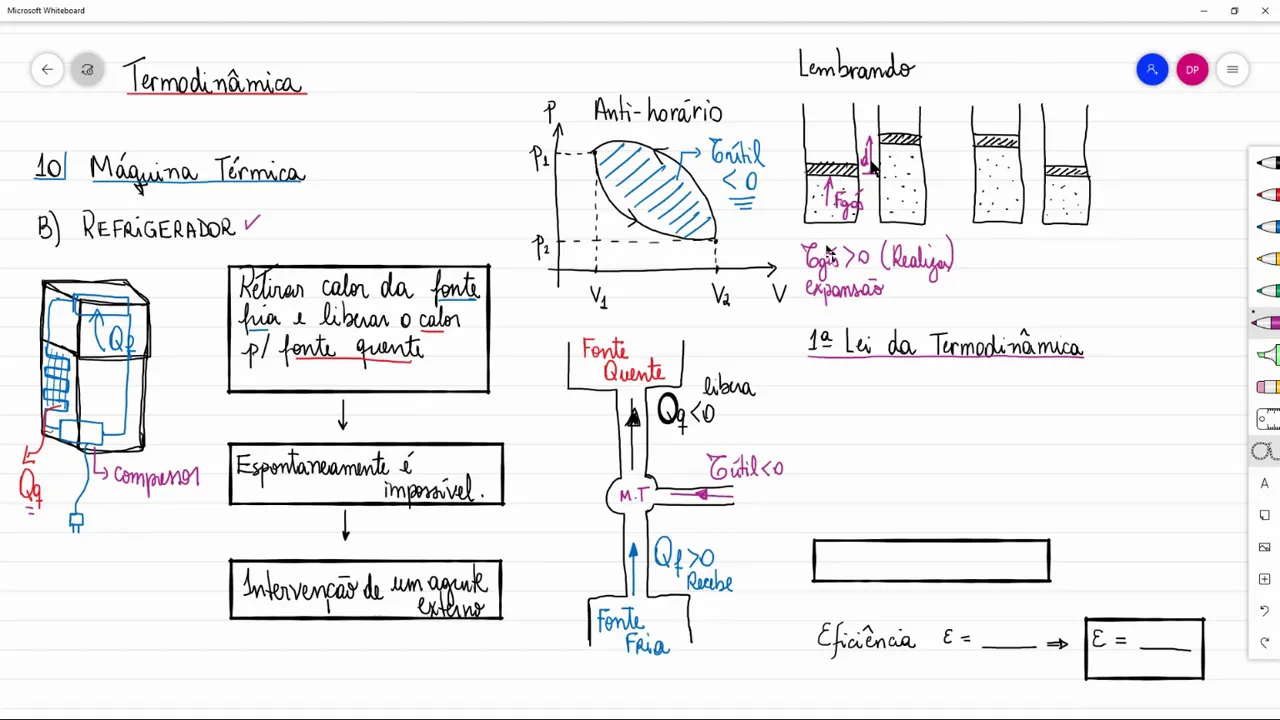 Microsoft Whiteboard
DP
Termodinâmica
10 Máquina Térmica
B) REFRIGERADOR ✓
Qf
Qq
compressor
Retirar calor da fonte
fria e liberar o calor
p/ fonte quente
Espontaneamente é
impossível.
Intervenção de um agente
externo
Anti-horário
P
P1
P2
V1
V2
V
τútil
< 0
Fonte
Quente
libera
Qq < 0
τútil < 0
M.T
Qf > 0
Recebe
Fonte
Fria
Lembrando
d
Fgás
τgás > 0 (Realiza)
expansão
1ª Lei da Termodinâmica
Eficiência ε = ____ ⇒ ε = ____
A